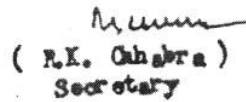 ( R.K. Chhabra )
Secretary